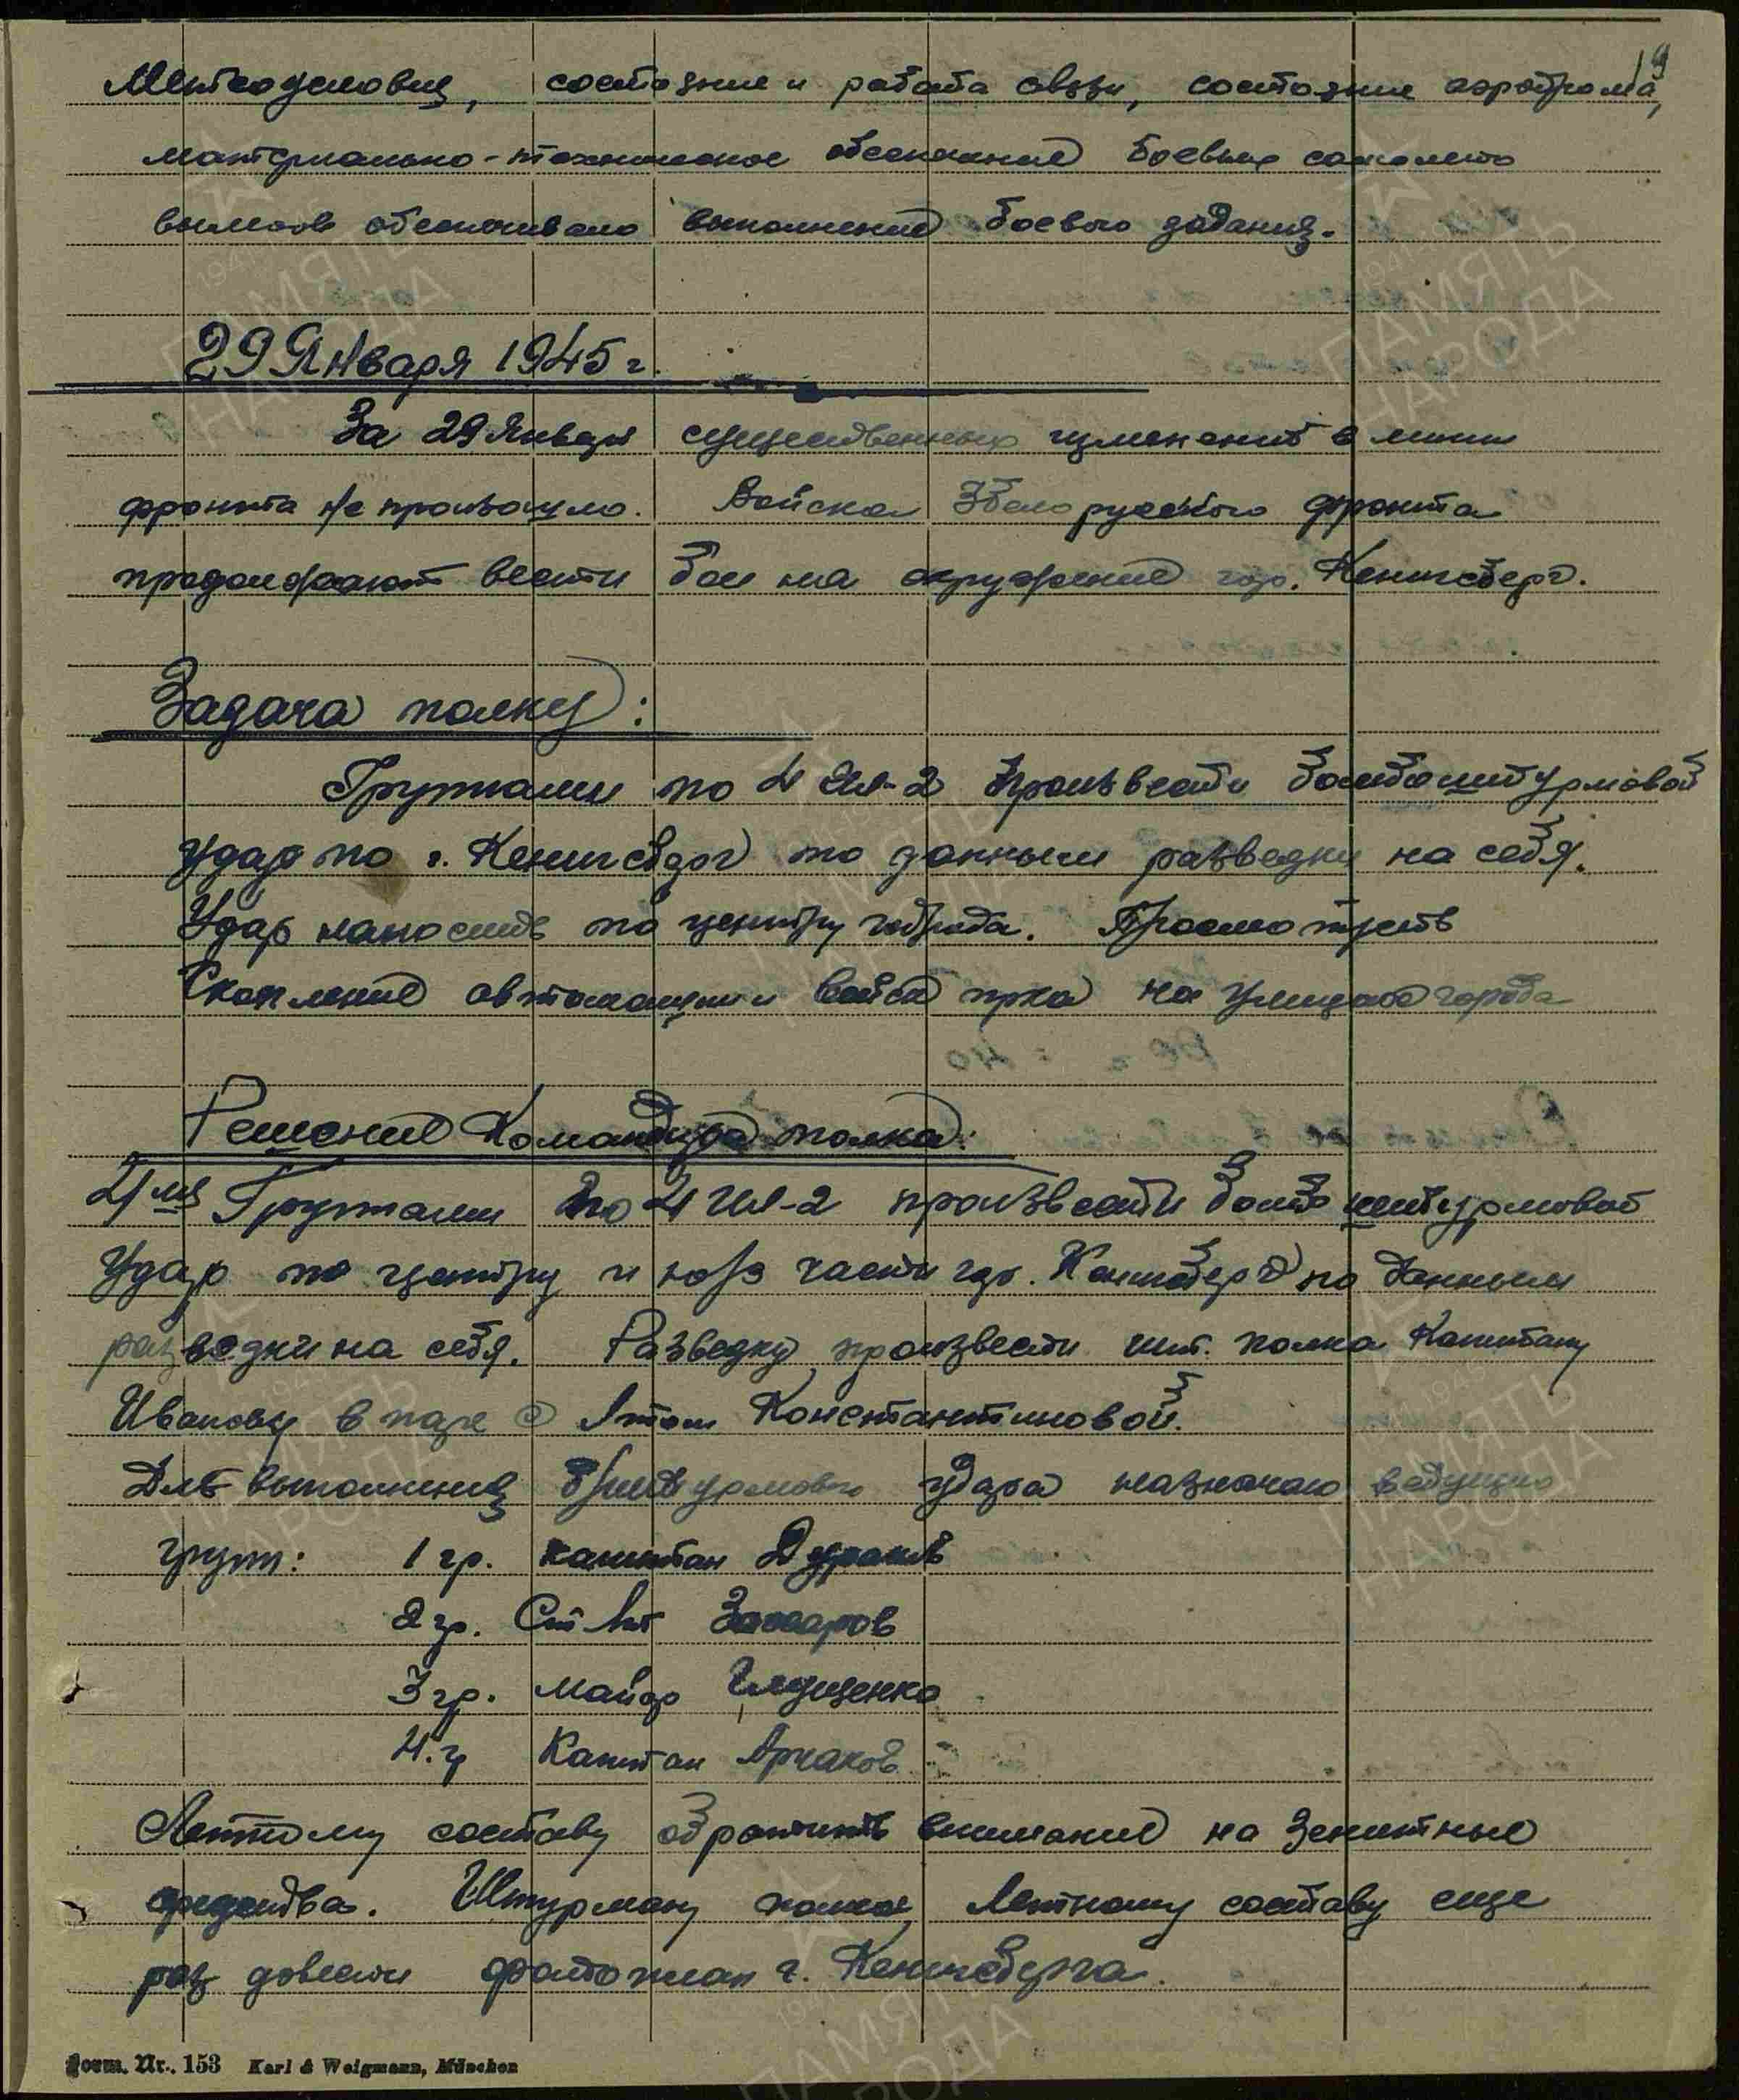 19
Метеоусловия, состояние и работа связи, состояние аэродрома,
материально-техническое обеспечение боевых самолето
вылетов обеспечивало выполнение боевого задания.
29 Января 1945 г.
За 29 Января существенных изменений в линии
фронта не произошло. Войска 3 Белорусского фронта
продолжают вести бои на окружение гор. Кенигсберг.
Задача полку:
Группами по 4 Ил-2 произвести бомбоштурмовой
удар по г. Кенигсберг по данным разведки на себя.
Удар наносить по центру города. Просмотреть
Скопление автомашин и войск пр-ка на улицах города
Решение Командира полка:
4мя Группами по 4 Ил-2 произвести бомбо штурмовой
Удар по центру и юз части гор. Кенигсберг по данным
разведки на себя. Разведку произвести шт. полка Капитану
Иванову в паре с Лтом Константиновой.
Для выполнения штурмового удара назначаю ведущими
групп: 1 гр. капитан
2 гр. Ст Лт Захаров
3 гр. майор Глущенко
4. гр Капитан
Летному составу обратить внимание на Зенитные
средства. Штурману полка Летному составу еще
раз довести фотоплан г. Кенигсберга.
Form. Nr. 153 Karl & Weigmann, München
ПАМЯТЬ
НАРОДА